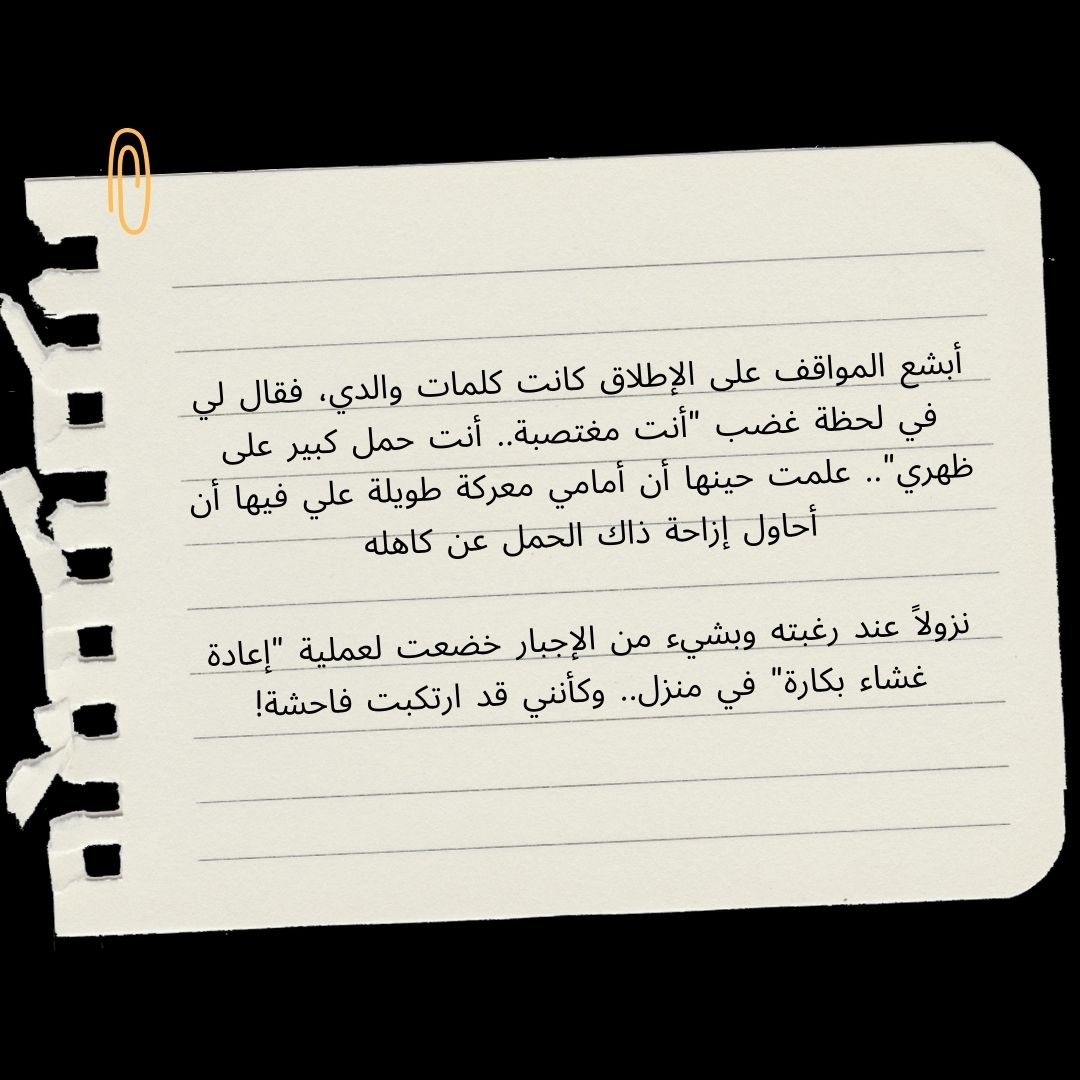 أبشع المواقف على الإطلاق كانت كلمات والدي، فقال لي
في لحظة غضب "أنت مغتصبة.. أنت حمل كبير على
ظهري".. علمت حينها أن أمامي معركة طويلة علي فيها أن
أحاول إزاحة ذاك الحمل عن كاهله
نزولاً عند رغبته وبشيء من الإجبار خضعت لعملية "إعادة
غشاء بكارة" في منزل.. وكأنني قد ارتكبت فاحشة!